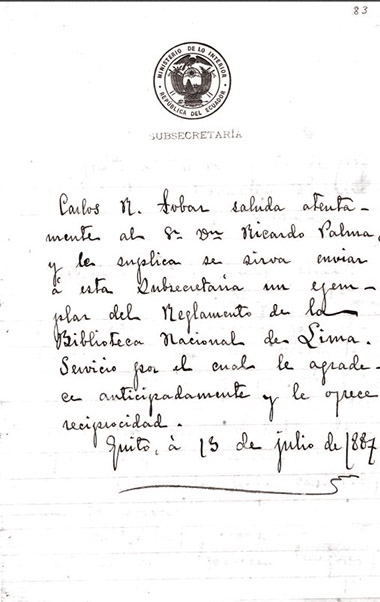 83
MINISTERIO DE LO INTERIOR
REPÚBLICA DEL ECUADOR
SUBSECRETARÍA
Carlos R. Tobar saluda atenta-
mente al Sr. Dn. Ricardo Palma,
y le suplica se sirva enviar
á esta Subsecretaría un ejem-
plar del Reglamento de la
Biblioteca Nacional de Lima.
Servicio por el cual le agrade-
ce anticipadamente y le ofrece
reciprocidad.
Quito, à 13 de julio de 1887